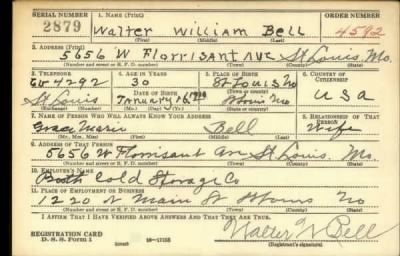 SERIAL NUMBER 1. NAME (Print) ORDER NUMBER
2879 Walter William Bell 4592
(First) (Middle) (Last)
2. ADDRESS (Print)
5656 W Florrisant Ave St Louis, Mo.
(Number and street or R. F. D. number) (Town) (County) (State)
3. TELEPHONE 4. AGE IN YEARS 5. PLACE OF BIRTH 6. COUNTRY OF CITIZENSHIP
Ev 4292 30 St Louis Mo
DATE OF BIRTH (Town or county)
St Louis January 16, 1910 USA
(Exchange) (Number) (Mo.) (Day) (Yr.) (State or country)
7. NAME OF PERSON WHO WILL ALWAYS KNOW YOUR ADDRESS 8. RELATIONSHIP OF THAT PERSON
Grace Marie Bell Wife
(Mr., Mrs., Miss) (First) (Middle) (Last)
9. ADDRESS OF THAT PERSON
5656 W Florrisant Ave St Louis, Mo.
(Number and street or R. F. D. number) (Town) (County) (State)
10. EMPLOYER'S NAME
Booth Cold Storage Co
11. PLACE OF EMPLOYMENT OR BUSINESS
1220 N Main St St Louis Mo
(Number and street or R. F. D. number) (Town) (County) (State)
I AFFIRM THAT I HAVE VERIFIED ABOVE ANSWERS AND THAT THEY ARE TRUE.
REGISTRATION CARD Walter W Bell
D. S. S. Form 1 (over) 16—17105 (Registrant's signature)